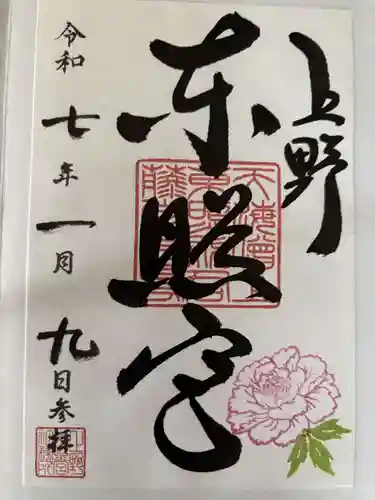 上野
東照宮
令和七年一月九日参拝